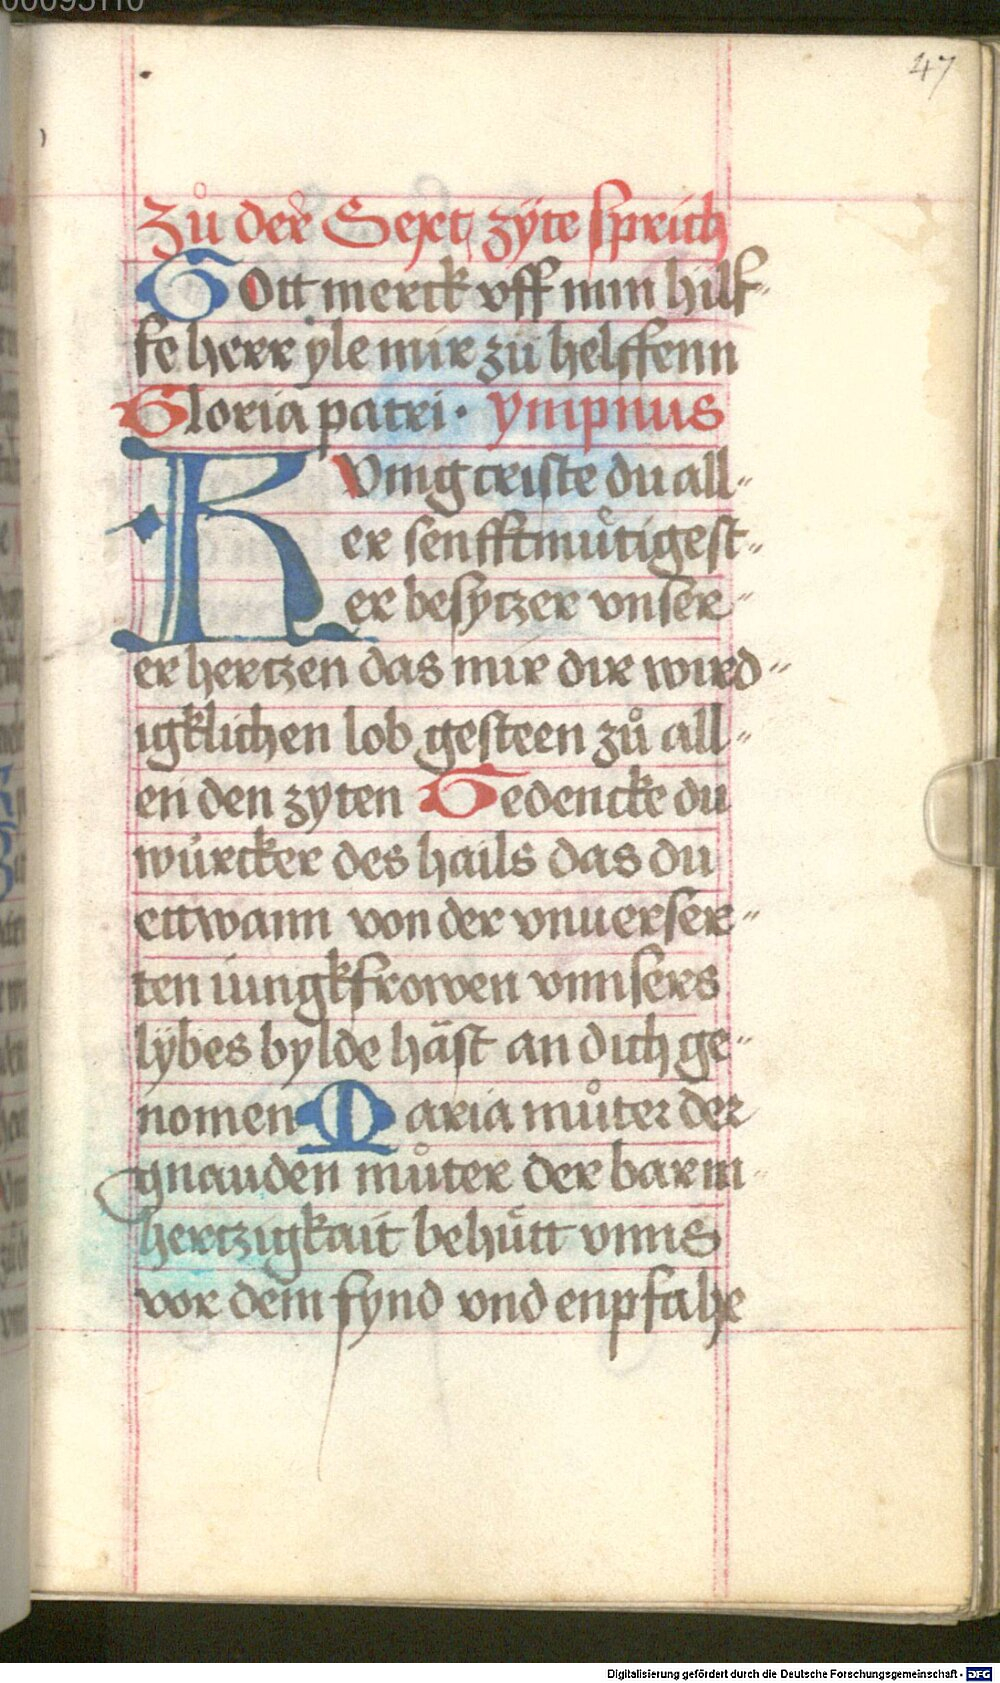 00095110
47
Zů der Sext zÿte sprich
GOtt merck vff min hilf-
fe herr yle mir zü helffenn
Gloria patri · ympnus
KVnig criste du all-
er senfftmůtigest-
er besytzer vnser-
er hertzen das mir dir wird-
igklichen lob gesteen zů all-
en den zyten Gedencke du
würcker des hails das du
ettwann von der vnuerser-
ten iungkfrowen vnnsers
lÿbes bylde häst an dich ge-
nomen Maria můter der
gnauden můter der barm-
hertzigkait behütt vnns
vor dem fynd vnd enpfahe
Digitalisierung gefördert durch die Deutsche Forschungsgemeinschaft - DFG